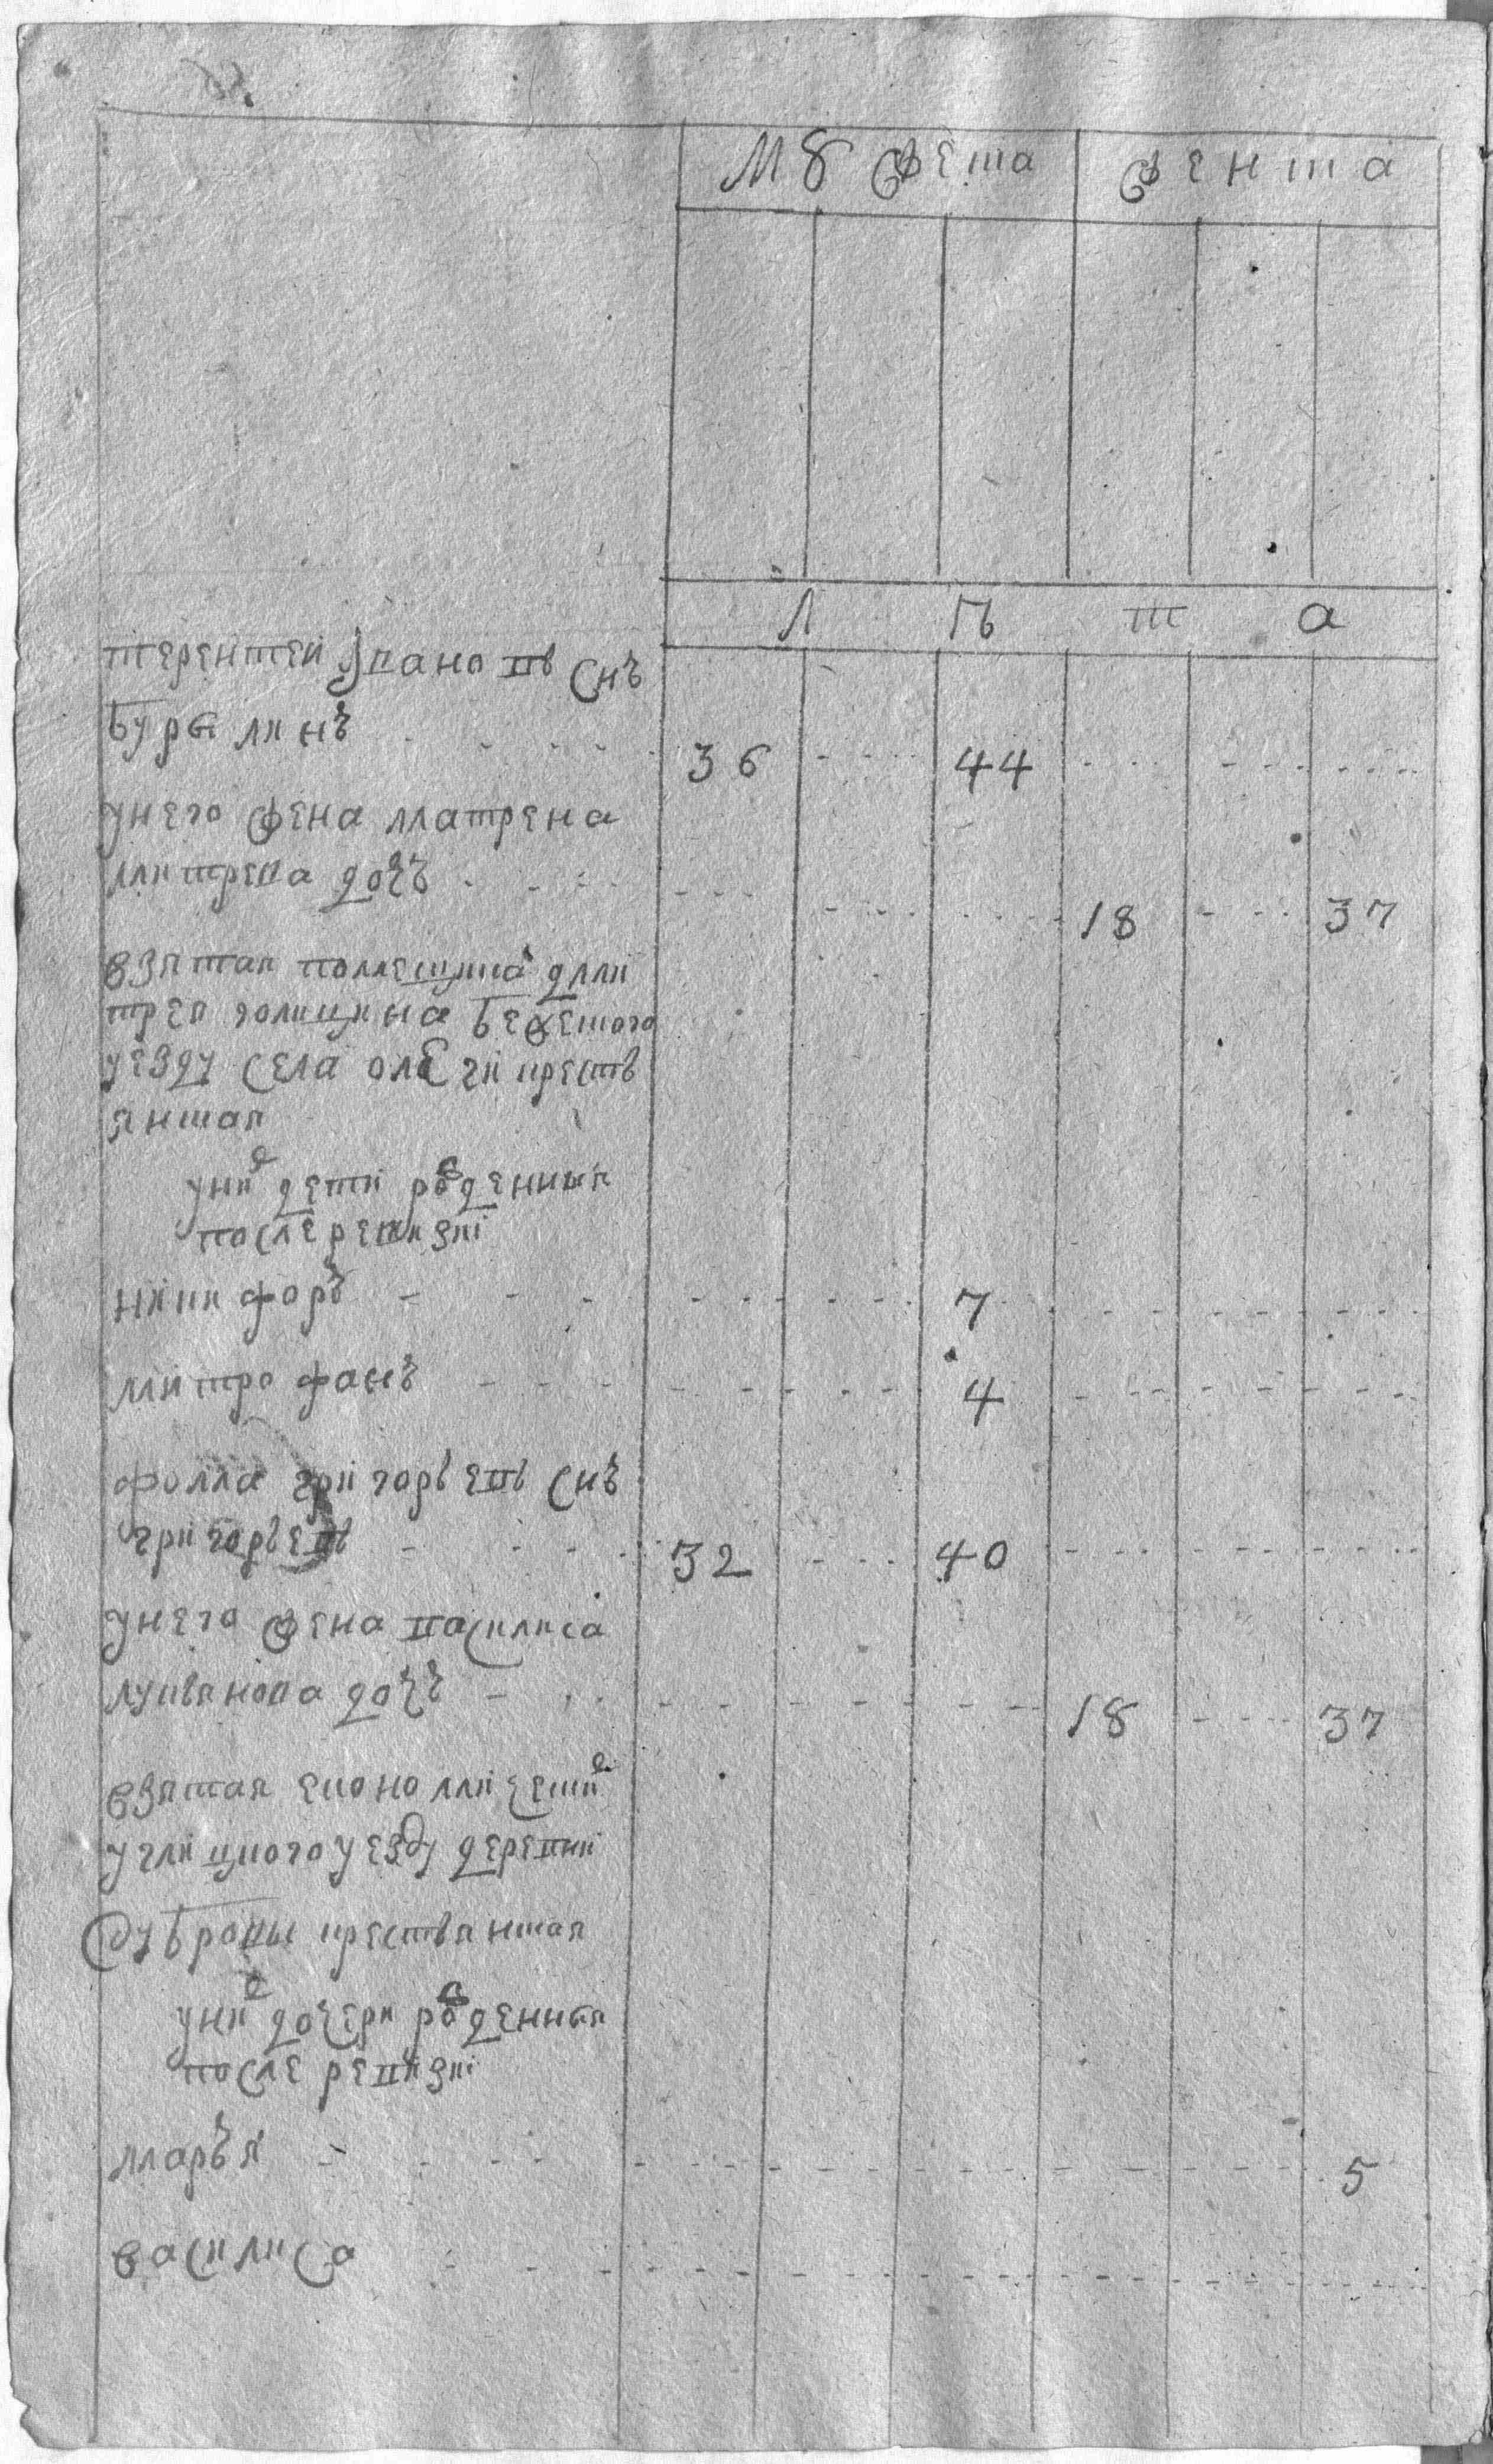 Мужеска Женска
Л Ѣ т а
терентей Iвановъ снъ
бурылинъ 36 44
унего жена матрена
митрева дочъ 18 37
взятая помещика дми
трея голицына бежецкого
уезду села
янская
уней дети рожденныя
после ревизиі
никифоръ 7
митрофанъ 4
фома григорьевъ снъ
григорьевъ 32 40
унего жена василиса
лукьянова дочъ 18 37
взятая економическ
углицкого уезду деревни
дубровы крестьянская
уней дочери рожденныя
после ревизиі
марья 5
василиса